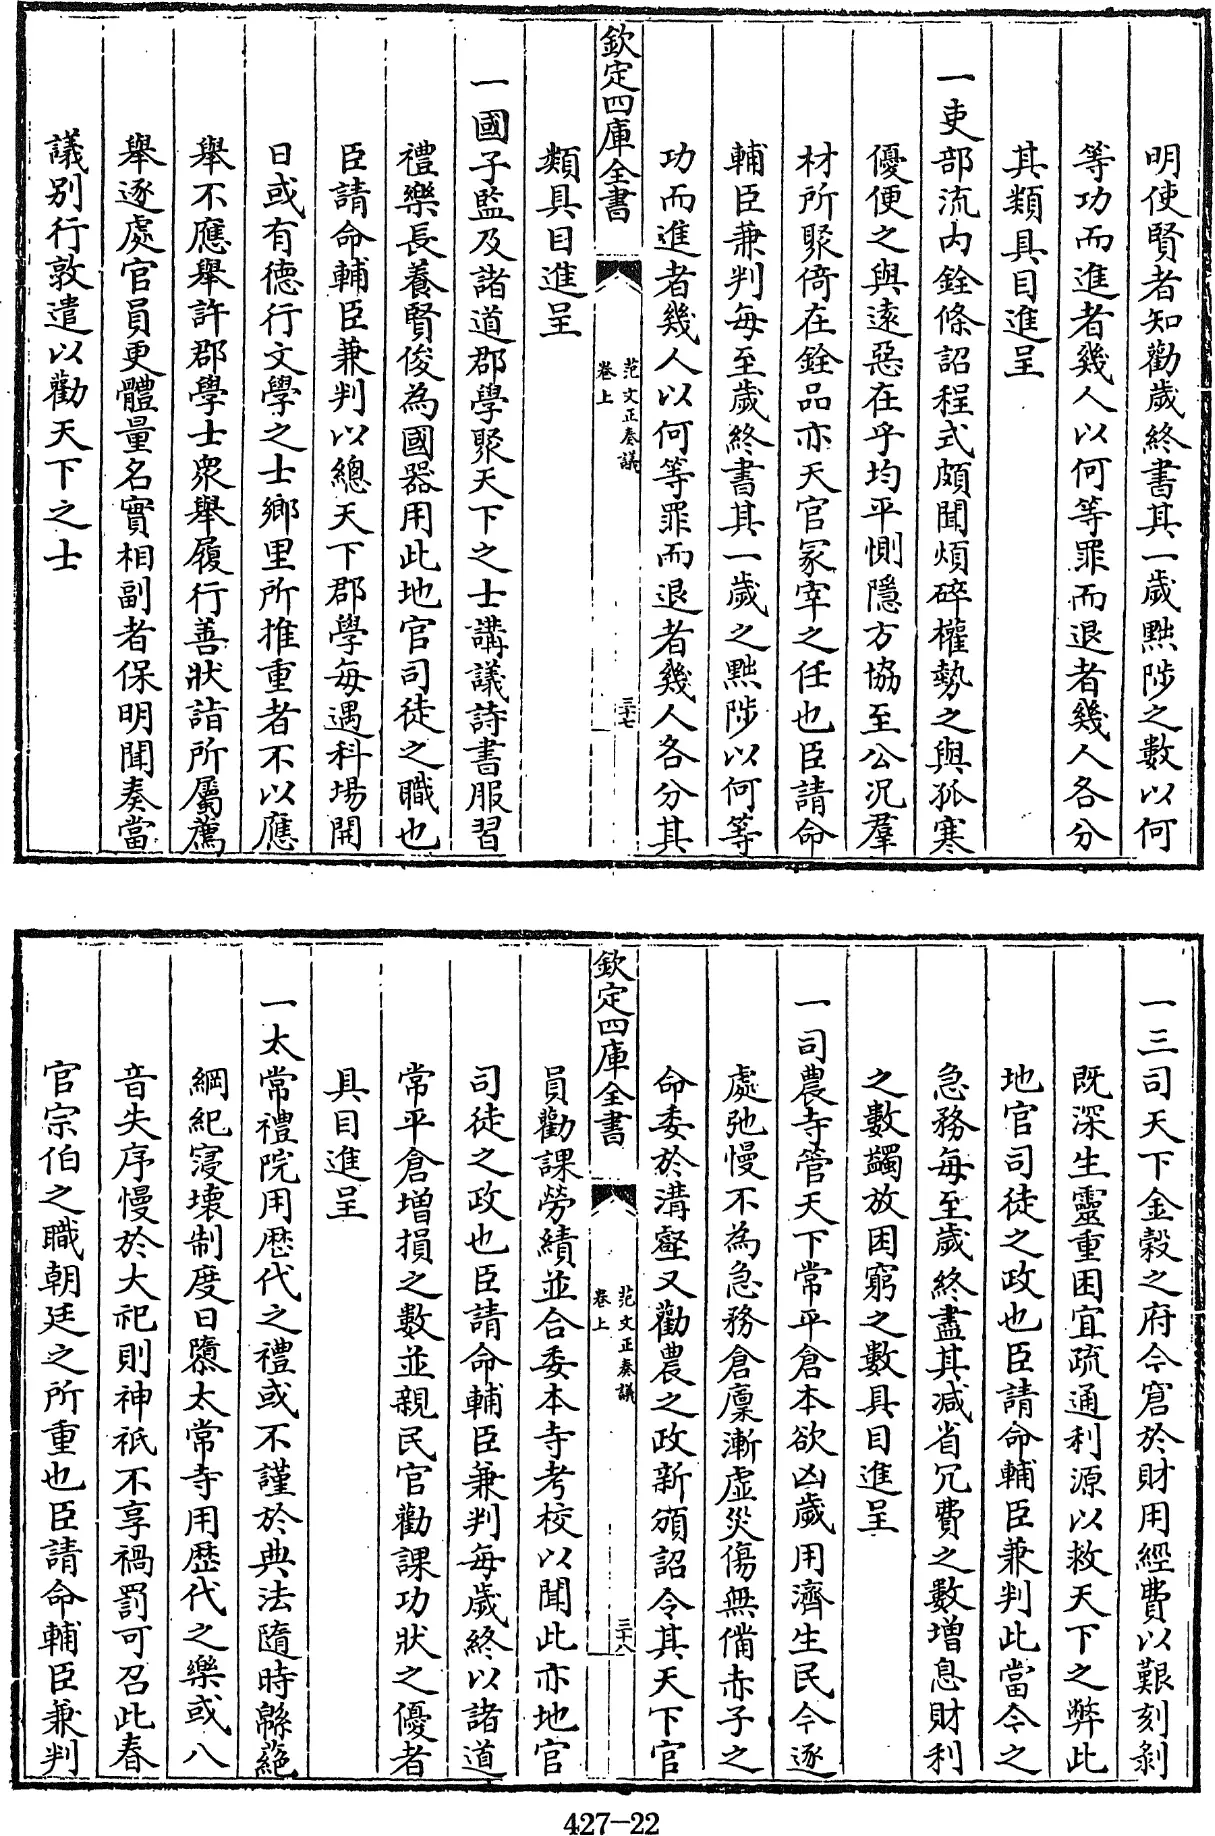 明使賢者知勸歲終書其一歲黜陟之數以何
等功而進者幾人以何等罪而退者幾人各分
其類具目進呈
一吏部流内銓條詔程式頗聞煩碎權勢之與孤寒
優便之與遠惡在乎均平惻隱方協至公況羣
材所聚倚在銓品亦天官冢宰之任也臣請命
輔臣兼判每至歲終書其一歲之黜陟以何等
功而進者幾人以何等罪而退者幾人各分其
欽定四庫全書
范文正奏議
卷上
三十七
類具目進呈
一國子監及諸道郡學聚天下之士講議詩書服習
禮樂長養賢俊為國器用此地官司徒之職也
臣請命輔臣兼判以總天下郡學每遇科場開
日或有德行文學之士鄉里所推重者不以應
舉不應舉許郡學士衆舉履行善狀詣所屬薦
舉逐處官員更體量名實相副者保明聞奏當
議别行敦遣以勸天下之士
一三司天下金穀之府今窘於財用經費以艱刻剝
既深生靈重困宜疏通利源以救天下之弊此
地官司徒之政也臣請命輔臣兼判此當今之
急務每至歲終盡其减省冗費之數增息財利
之數蠲放困窮之數具目進呈
一司農寺管天下常平倉本欲凶歲用濟生民今逐
處弛慢不為急務倉廩漸虚災傷無備赤子之
命委於溝壑又勸農之政新頒詔令其天下官
欽定四庫全書
范文正奏議
卷上
三十八
員勸課勞績並合委本寺考校以聞此亦地官
司徒之政也臣請命輔臣兼判每歲終以諸道
常平倉增損之數並親民官勸課功狀之優者
具目進呈
一太常禮院用歴代之禮或不謹於典法隨時緜蕝
綱紀寖壊制度日隳太常寺用歴代之樂或八
音失序慢於大祀則神祇不享禍罰可召此春
官宗伯之職朝廷之所重也臣請命輔臣兼判
427-22